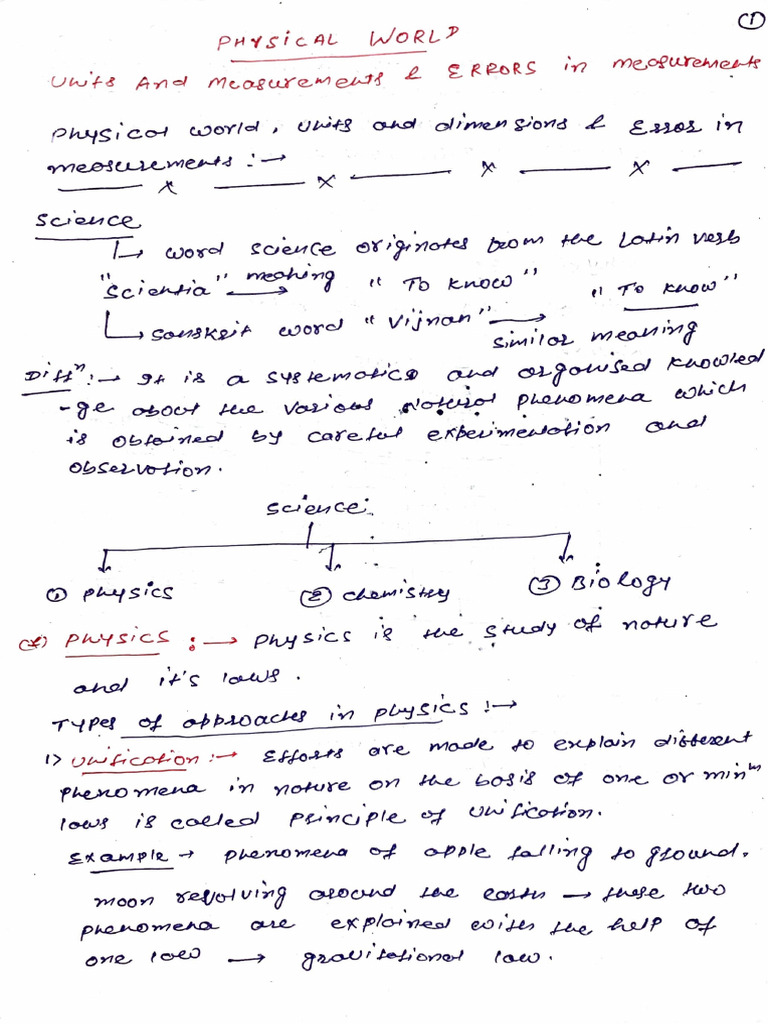 ①
PHYSICAL WORLD
Units And Measurements & ERRORS in measurements
Physical world, units and dimensions & Error in
measurements :→
Science
↳ word science originates from the Latin verb
"Scientia" meaning → "To know" "To know"
↳ Sanskrit word "Vijnan" → similar meaning
Diffⁿ :→ It is a systematics and organised knowled
-ge about the various natural phenomena which
is obtained by careful experimentation and
observation.
Science
① Physics ② chemistry ③ Biology
(*) PHYSICS :→ Physics is the study of nature
and it's laws.
TYPes of approaches in physics :→
1) Unification :→ Efforts are made to explain different
phenomena in nature on the basis of one or minᵐ
laws is called Principle of Unification.
Example → phenomena of apple falling to ground.
moon revolving around the earth → these two
phenomena are explained with the help of
one law → gravitational law.